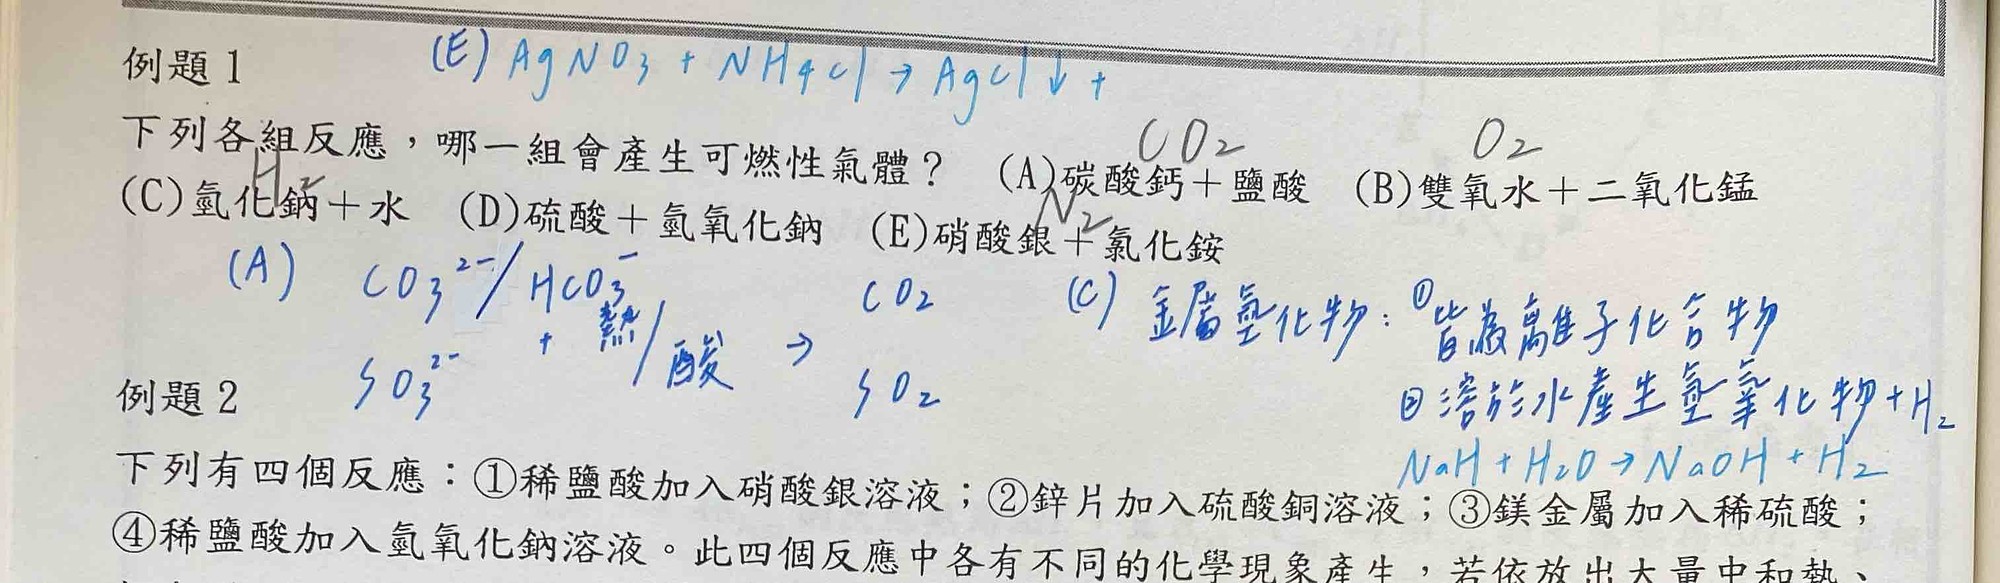 例題1
(E) AgNO3 + NH4Cl → AgCl↓ +
CO2 O2
下列各組反應，哪一組會產生可燃性氣體？ (A)碳酸鈣＋鹽酸 (B)雙氧水＋二氧化錳
H2 N2
(C)氫化鈉＋水 (D)硫酸＋氫氧化鈉 (E)硝酸銀＋氯化銨
(A) CO3²⁻/HCO3⁻ CO2 (C) 金屬氫化物：①皆為離子化合物
+ 熱/酸 →
SO3²⁻ SO2 ②溶於水產生氫氧化物+H2
例題2
NaH+H2O→NaOH+H2
下列有四個反應：①稀鹽酸加入硝酸銀溶液；②鋅片加入硫酸銅溶液；③鎂金屬加入稀硫酸；
④稀鹽酸加入氫氧化鈉溶液。此四個反應中各有不同的化學現象產生，若依放出大量中和熱、